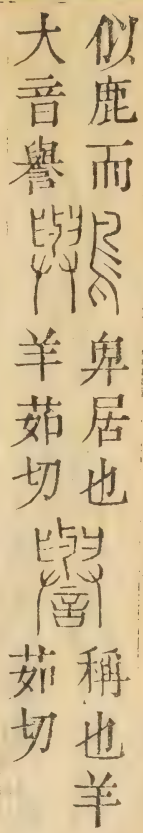 似鹿而
大音譽
鸒
卑居也
羊茹切
譽
稱也羊
茹切